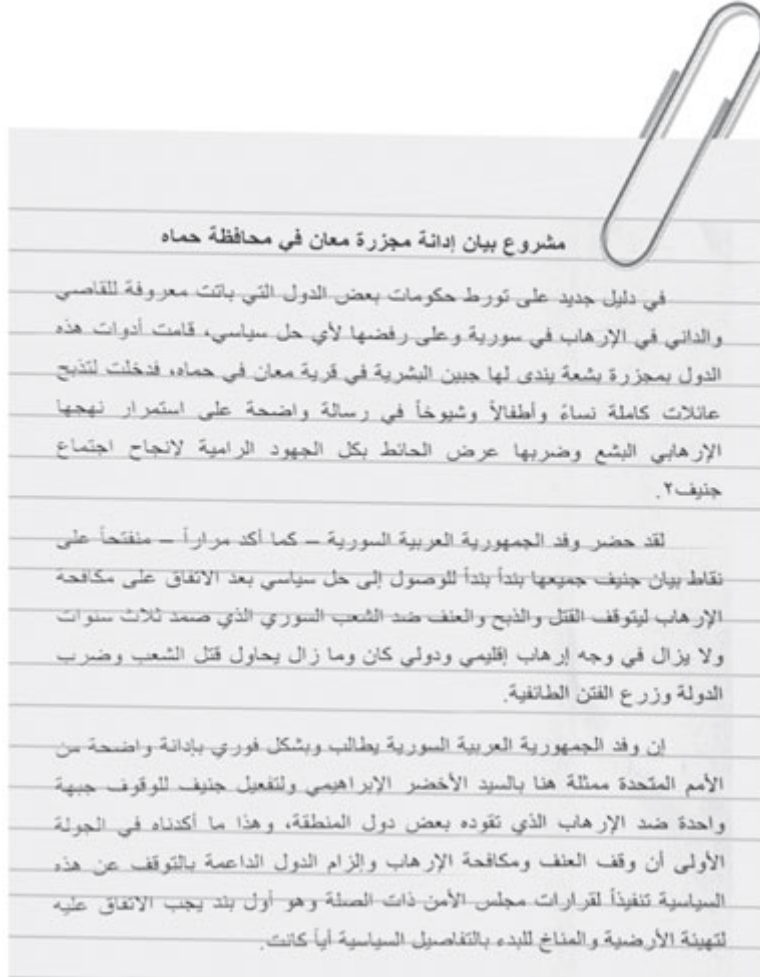 مشروع بيان إدانة مجزرة معان في محافظة حماه
في دليل جديد على تورط حكومات بعض الدول التي باتت معروفة للقاصي
والداني في الإرهاب في سورية وعلى رفضها لأي حل سياسي، قامت أدوات هذه
الدول بمجزرة بشعة يندى لها جبين البشرية في قرية معان في حماه، فدخلت لتذبح
عائلات كاملة نساءً وأطفالاً وشيوخاً في رسالة واضحة على استمرار نهجها
الإرهابي البشع وضربها عرض الحائط بكل الجهود الرامية لانجاح اجتماع
جنيف٢.
لقد حضر وفد الجمهورية العربية السورية – كما أكد مراراً – منفتحاً على
نقاط بيان جنيف جميعها بنداً بنداً للوصول إلى حل سياسي بعد الاتفاق على مكافحة
الإرهاب ليتوقف القتل والذبح والعنف ضد الشعب السوري الذي صمد ثلاث سنوات
ولا يزال في وجه إرهاب إقليمي ودولي كان وما زال يحاول قتل الشعب وضرب
الدولة وزرع الفتن الطائفية.
إن وفد الجمهورية العربية السورية يطالب وبشكل فوري بإدانة واضحة من
الأمم المتحدة ممثلة هنا بالسيد الأخضر الإبراهيمي ولتفعيل جنيف للوقوف جبهة
واحدة ضد الإرهاب الذي تقوده بعض دول المنطقة، وهذا ما أكدناه في الجولة
الأولى أن وقف العنف ومكافحة الإرهاب وإلزام الدول الداعمة بالتوقف عن هذه
السياسية تنفيذاً لقرارات مجلس الأمن ذات الصلة وهو أول بند يجب الاتفاق عليه
لتهيئة الأرضية والمناخ للبدء بالتفاصيل السياسية أياً كانت.